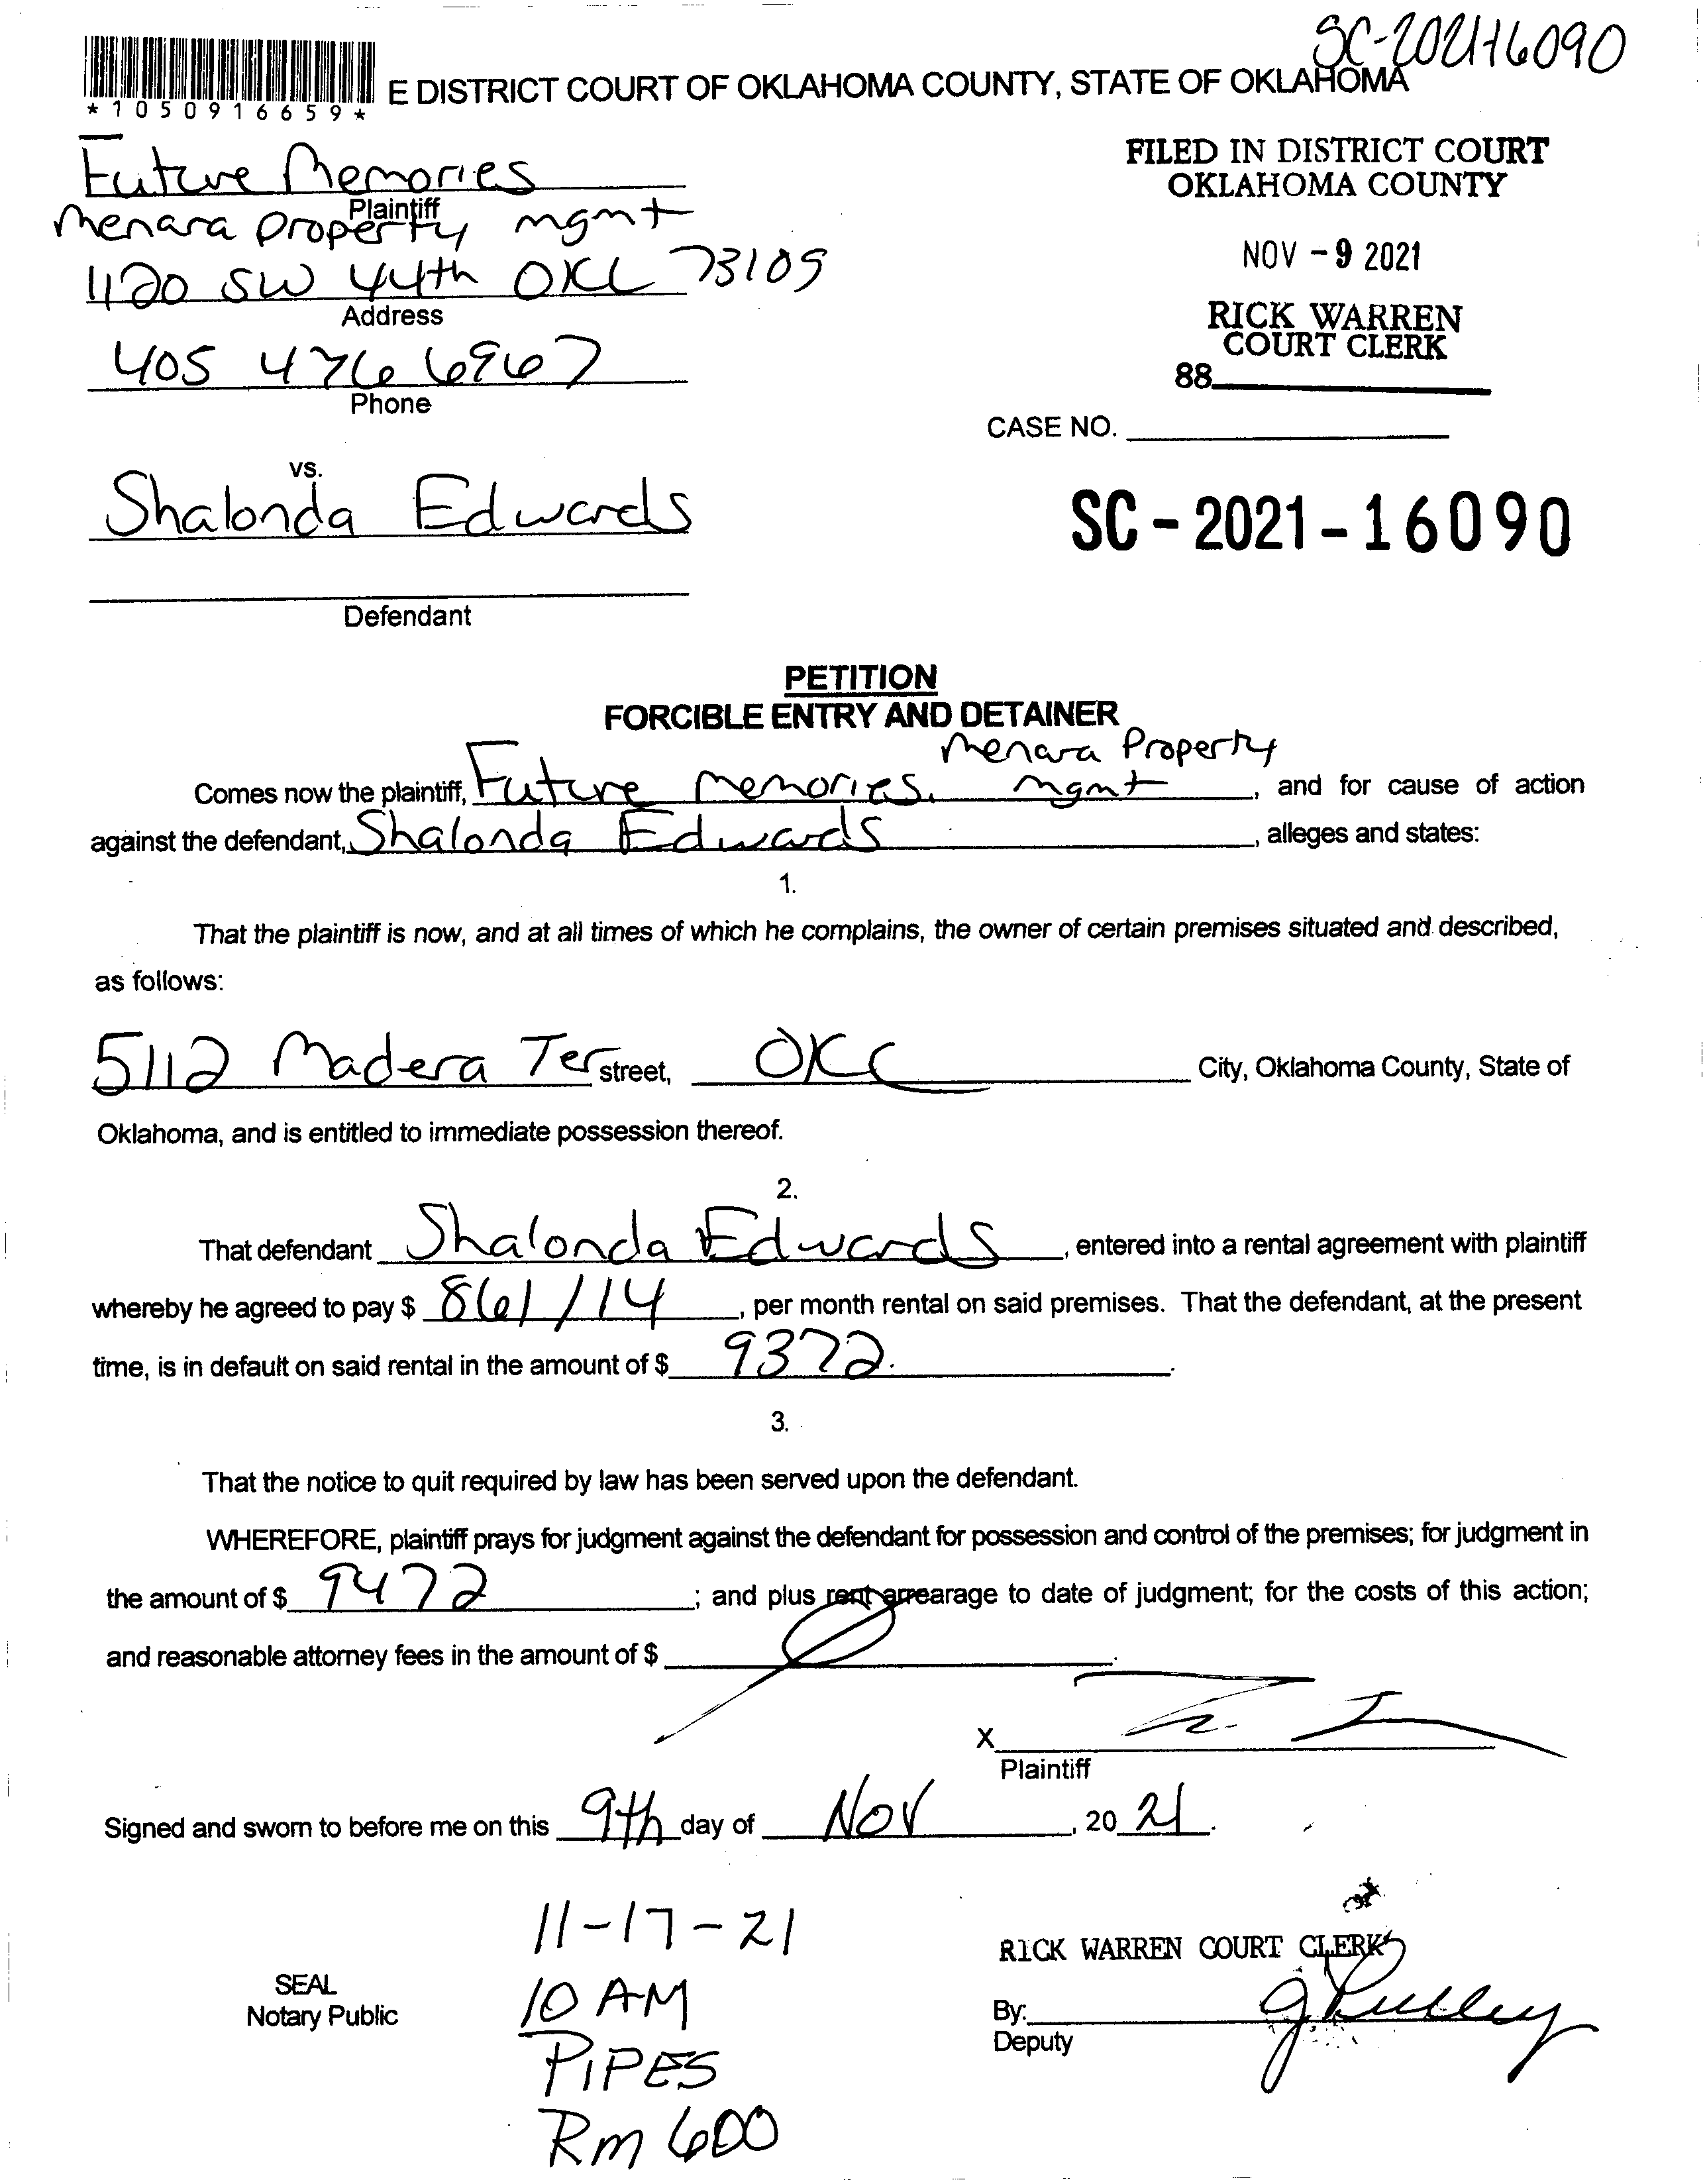 SC-2021-16090
*1050916659*
E DISTRICT COURT OF OKLAHOMA COUNTY, STATE OF OKLAHOMA
FILED IN DISTRICT COURT
OKLAHOMA COUNTY
NOV -9 2021
RICK WARREN
COURT CLERK
88
Future Memories
Plaintiff
Menara Property mgmt
1120 SW 44th OKC 73109
Address
405 476 6967
Phone
CASE NO.
vs.
Shalonda Edwards
SC-2021-16090
Defendant
PETITION
FORCIBLE ENTRY AND DETAINER
Menara Property
Comes now the plaintiff, Future Memories. mgmt, and for cause of action
against the defendant, Shalonda Edwards, alleges and states:
1.
That the plaintiff is now, and at all times of which he complains, the owner of certain premises situated and described,
as follows:
5112 Madera Ter street, OKC City, Oklahoma County, State of
Oklahoma, and is entitled to immediate possession thereof.
2.
That defendant Shalonda Edwards, entered into a rental agreement with plaintiff
whereby he agreed to pay $ 861/14, per month rental on said premises. That the defendant, at the present
time, is in default on said rental in the amount of $ 9372.
3.
That the notice to quit required by law has been served upon the defendant.
WHEREFORE, plaintiff prays for judgment against the defendant for possession and control of the premises; for judgment in
the amount of $ 9472; and plus rent arrearage to date of judgment; for the costs of this action;
and reasonable attorney fees in the amount of $
X
Plaintiff
Signed and sworn to before me on this 9th day of Nov, 20 21.
11-17-21
10 AM
PIPES
Rm 600
SEAL
Notary Public
RICK WARREN COURT CLERK
By:
Deputy